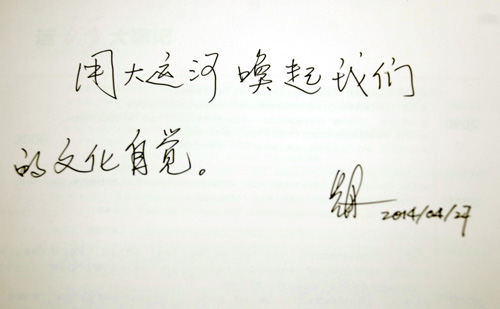 用大运河唤起我们
的文化自觉。
2014/04/27